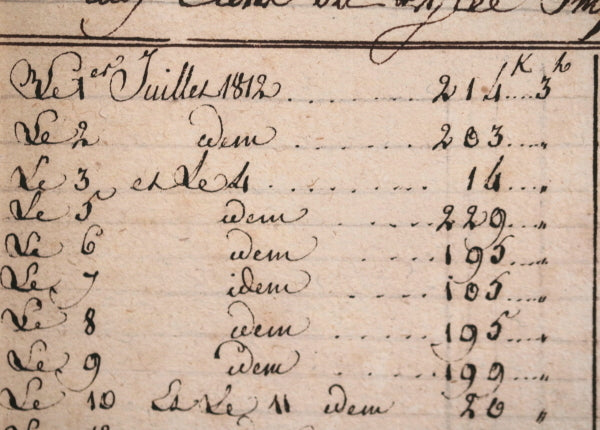 Le 1er Juillet 1812 ...... 214K....3h
Le 2 idem ..... 203....„
Le 3 et Le 4 ........ 14....„
Le 5 idem ..... 229....„
Le 6 idem ..... 195....„
Le 7 idem ..... 185....„
Le 8 idem ..... 195....„
Le 9 idem ..... 199....„
Le 10 Et Le 11 idem 20 „